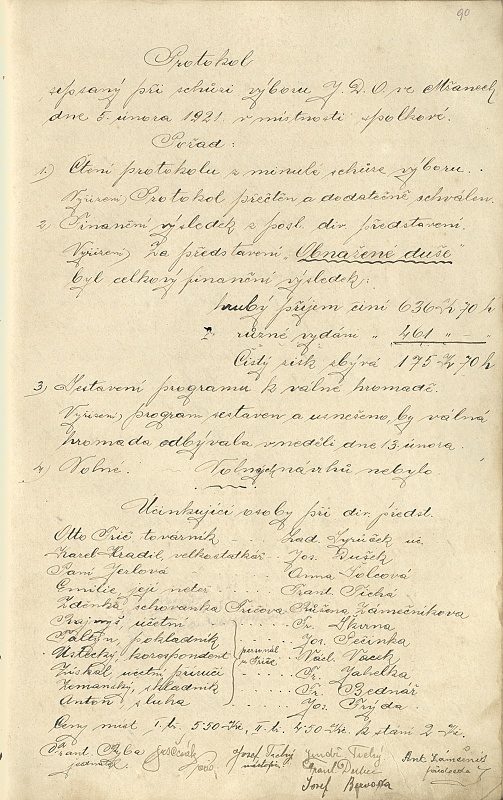 90
Protokol
sepsaný při schůzi výboru J. D. O. ve Mřanech
dne 5. února 1921. v místnosti spolkové.
Pořad:
1.) Čtení protokolu z minulé schůze výboru.
Vyřízení) Protokol přečten a dodatečně schválen.
2) Finanční výsledek z posl. div. představení.
Vyřízení) Za představení „Obnažené duše"
byl celkový finanční výsledek:
hrubý příjem činí 636 Kč 70 h
různé vydání „ 461 „ — „
Čistý zisk zbývá 175 Kč 70 h
3) Sestavení programu k valné hromadě.
Vyřízení) program sestaven a usneseno, by valná
hromada odbývala v neděli dne 13. února.
4) Volné. ~ Volných návrhů nebylo
Účinkující osoby při div. předst.
Otto Frič továrník - - - Lad. uč.
Karel Hradil, velkostatkář - - Jos. Dušek
Paní Jerlová - - - - Anna Šolcová
Emilie, její neteř - - - Frant. Tichá
Zdeňka, schovanka Fričova - Růžena Zámečníkova
účetní - - - Fr. Skrna
pokladník - - - Jos. Pečinka
Ústecký, korespondent personál u Friče Václ. Vacek
Získal účetní příručí - - - Fr. Jabelka
Zemanský, skladník - - - Fr. Bednář
Antoň, sluha - - - Jos. Frýda
Ceny míst I. tř. 5·50 Kč, II. tř. 4·50 Kč. k stání 2 Kč.
Frant. jednatel. Josef Tichý Jindř. Tichý Ant. Zámečník předseda
Frant. Dušek
Josef